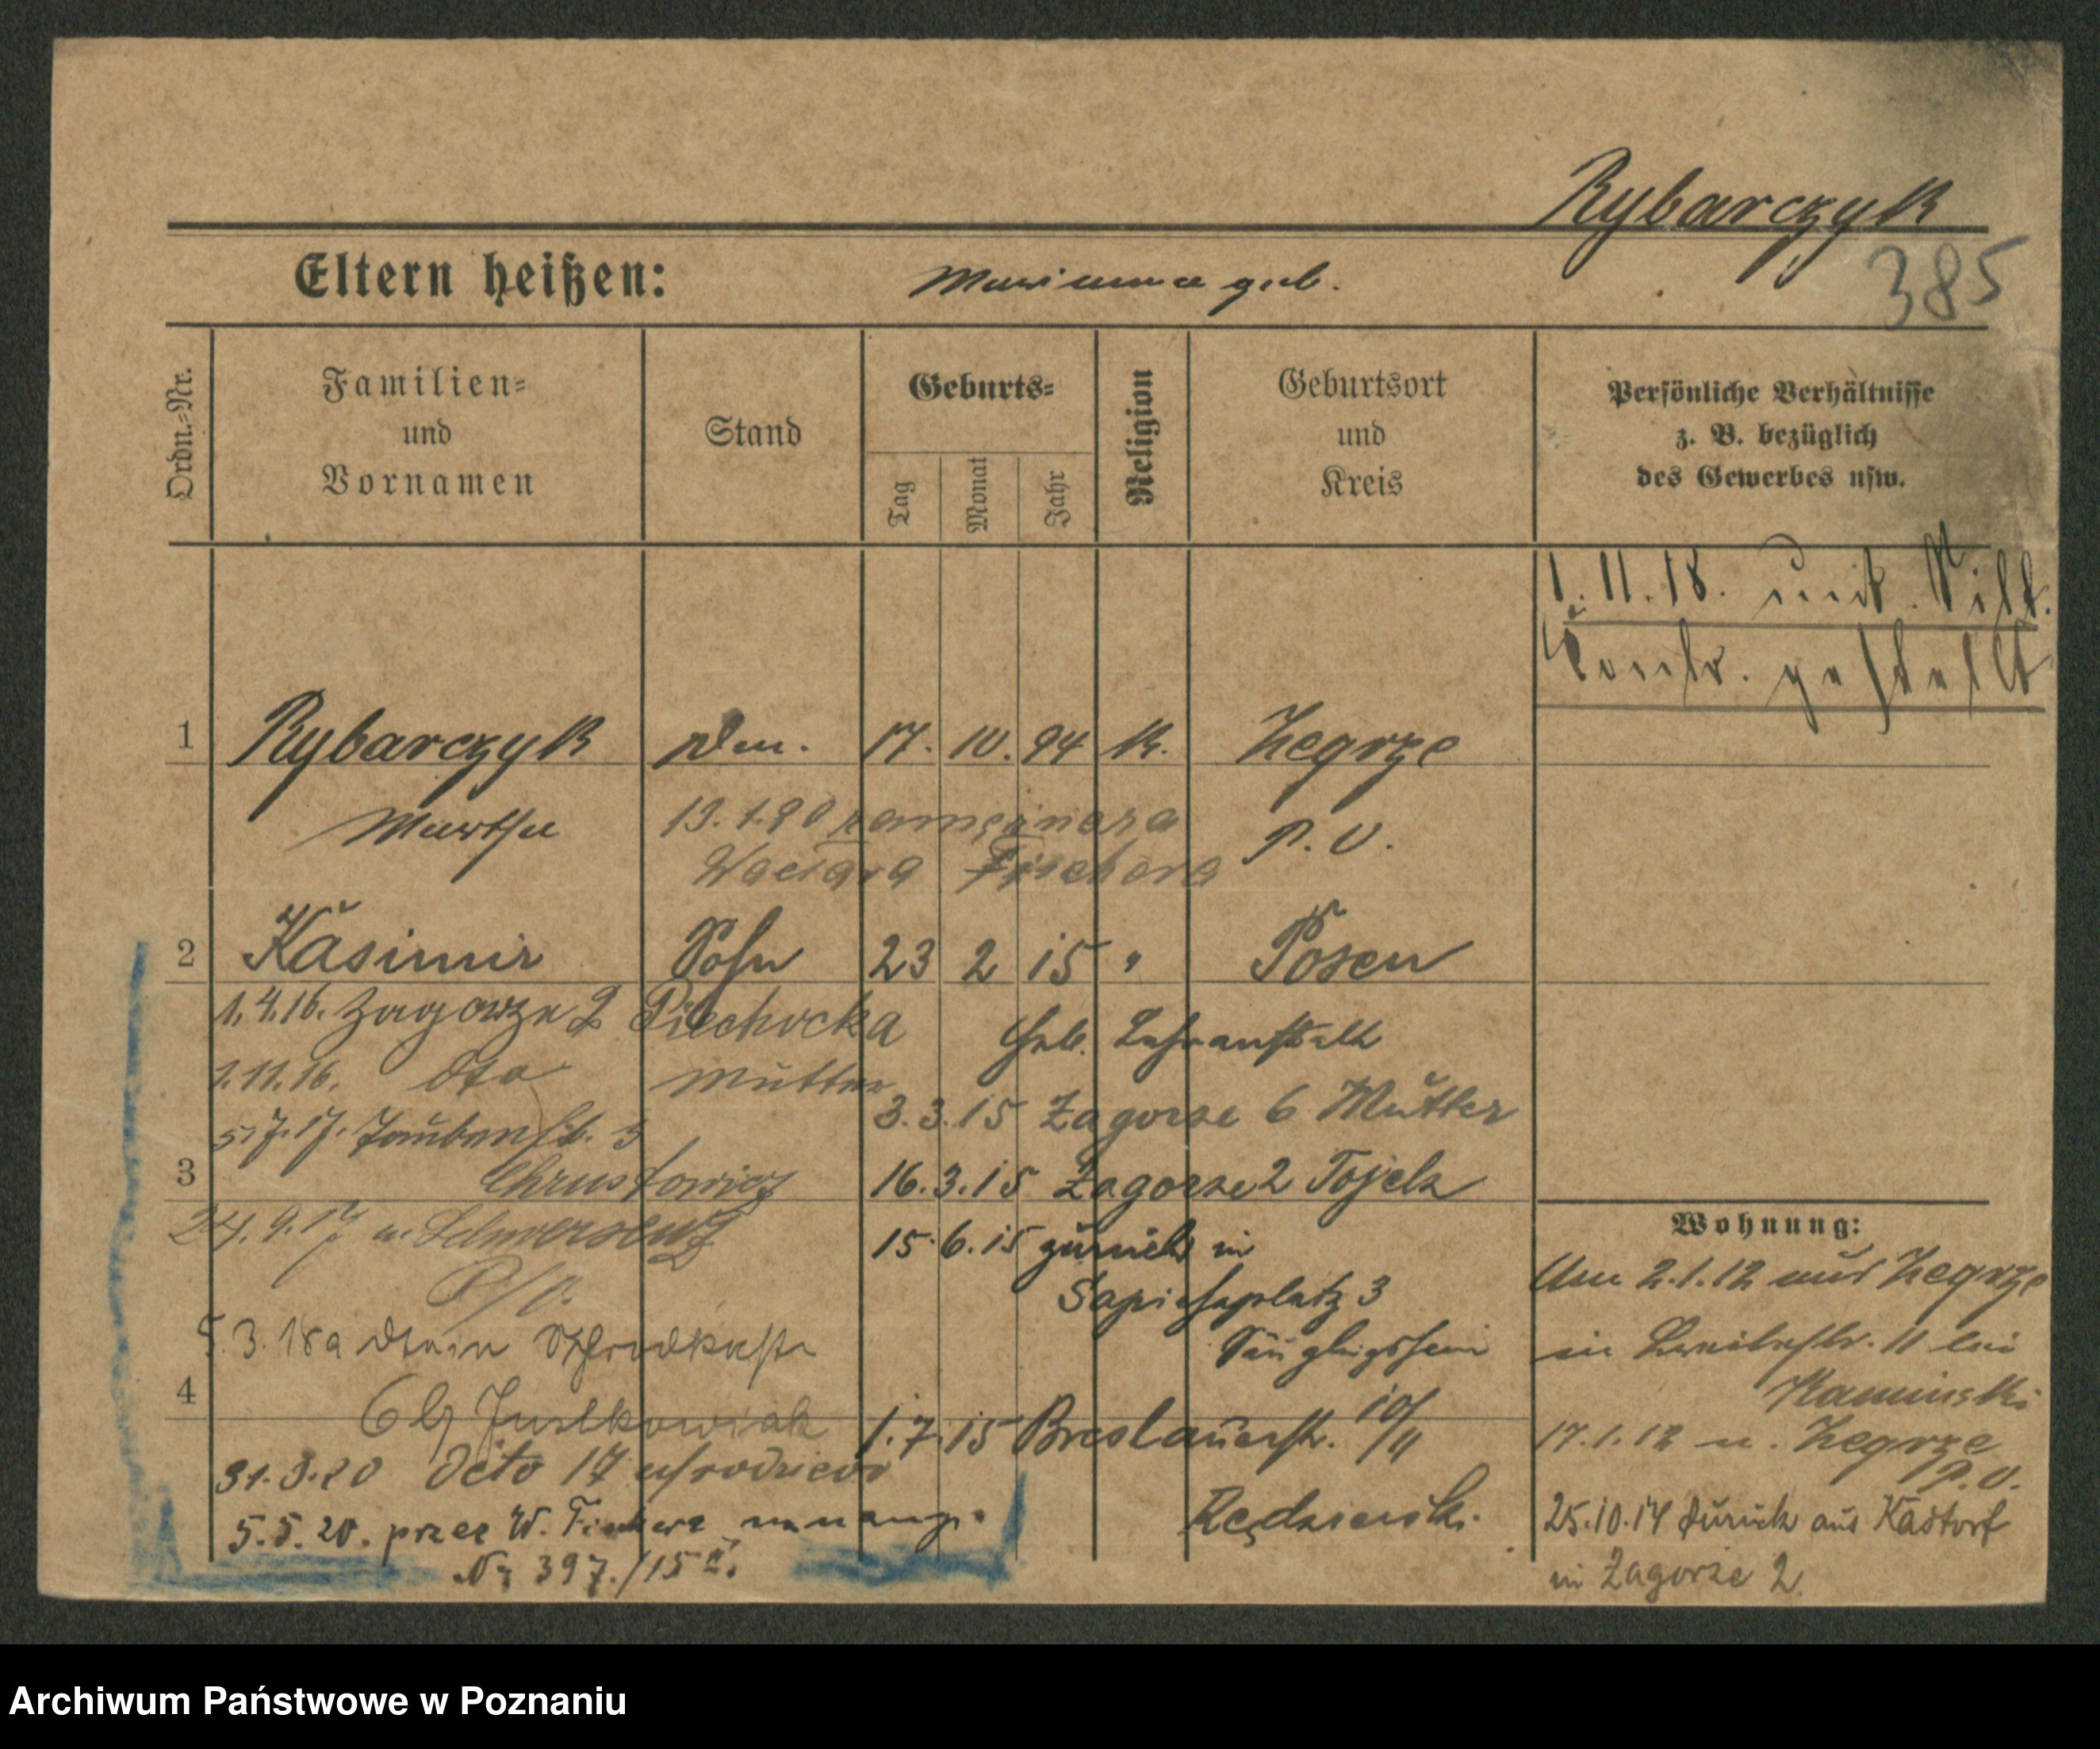 Rybarczyk
385
Eltern heißen: Marianna geb.
Ordn.-Nr.
Familien-
und
Vornamen
Stand
Geburts-
Tag
Monat
Jahr
Religion
Geburtsort
und
Kreis
Persönliche Verhältnisse
z. B. bezüglich
des Gewerbes usw.
1.11.18. mit
gestellt
1 Rybarczyk 17. 10. 94 k. Zegrze
Martha
P. O.
13.1.20 zamężna
Wacława Fischera
2 Kasimir Sohn 23 2 15 " Posen
1.4.16. Zagorze 2 Piechocka
1.11.16. dto Mutter
5.7.17. Taubenstr. 5
Chrustowicz
24.9.17 n. Schwersenz
P/O.
5.3.18
6 b/ Juskowiak
31.3.20 déto 17
5.5.20. przez W. Fischera
Nr 397./15
Geb. Lehranstalt
3.3.15 Zagorze 6 Mutter
3
16.3.15 Zagorze 2
15.6.15 zurück in
Sapiehaplatz 3
Säuglingsheim
4
1.7.15 Breslauerstr. 10/11
Rędzierski
Wohnung:
Am 2.1.12 aus Zegrze
in 11 bei
Kaminski
17.1.12 n. Zegrze
P.O.
25.10.14 zurück aus
in Zagorze 2.
Archiwum Państwowe w Poznaniu